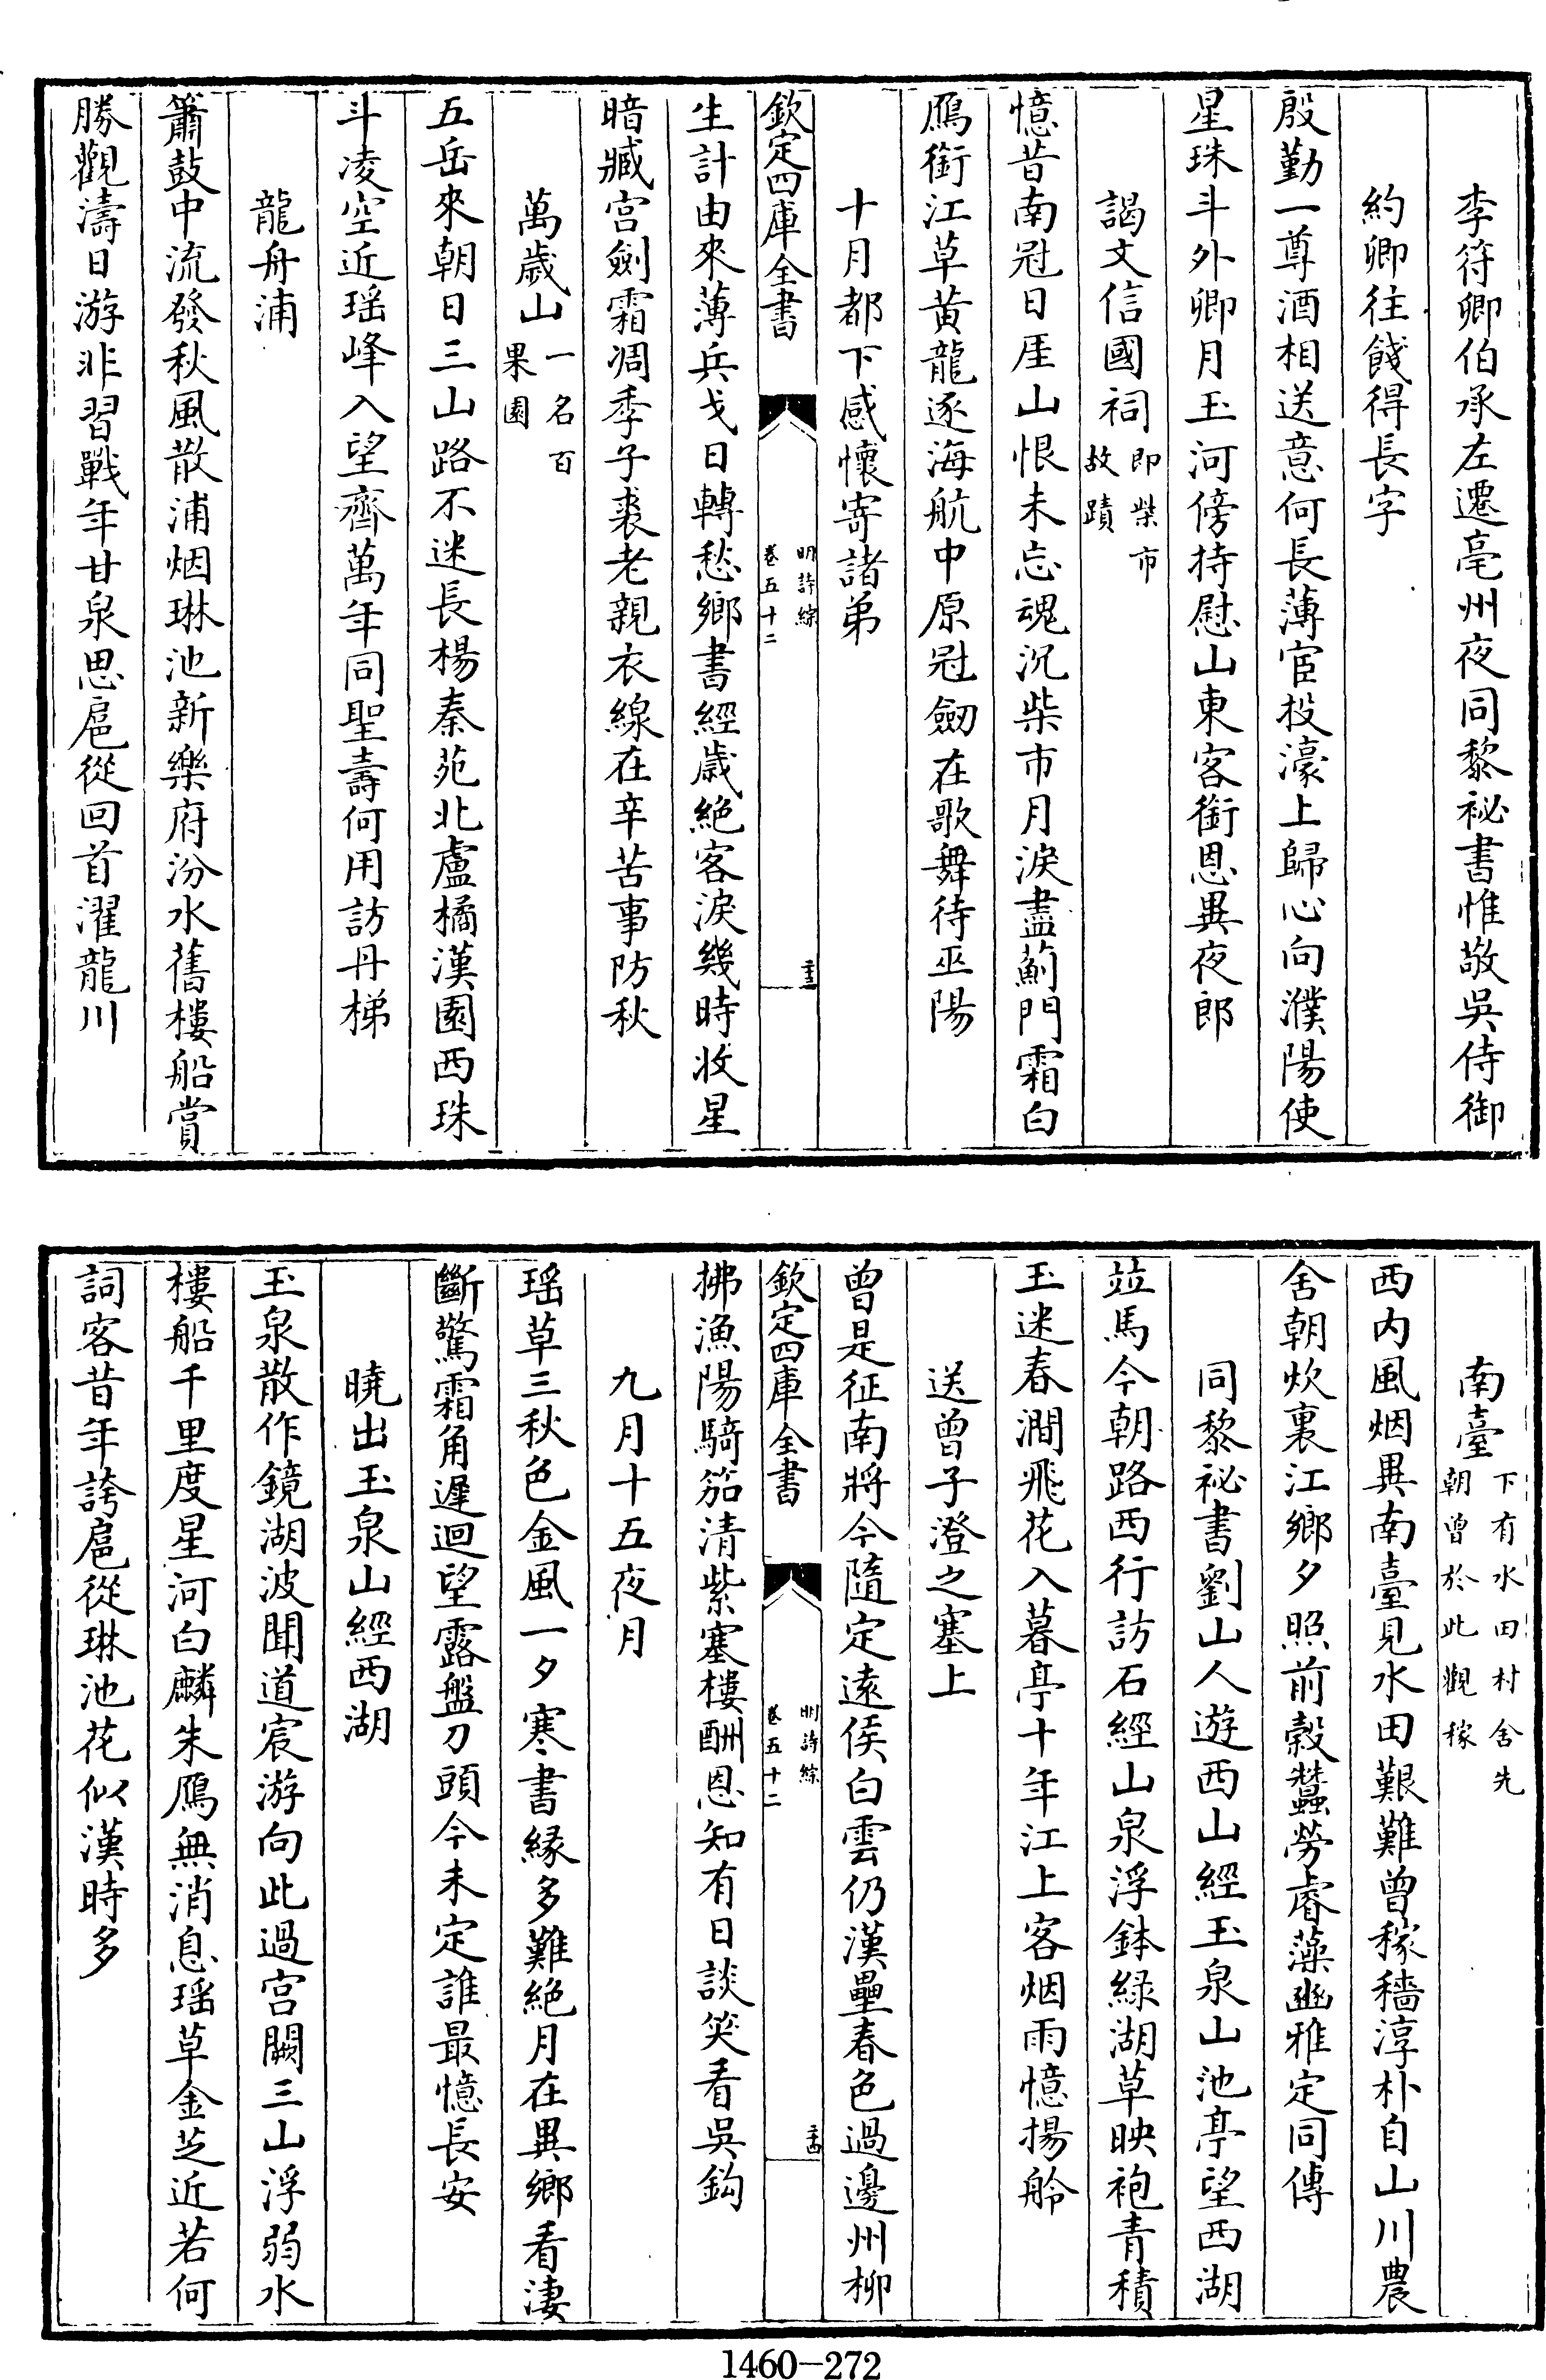 李符卿伯承左遷亳州夜同黎祕書惟敬吳侍御
約卿往餞得長字
殷勤一尊酒相送意何長薄宦投濠上歸心向濮陽使
星珠斗外卿月玉河傍持慰山東客銜恩異夜郎
謁文信國祠即柴市故蹟
憶昔南冠日厓山恨未忘魂沉柴市月淚盡薊門霜白
鴈銜江草黄龍逐海航中原冠劒在歌舞待巫陽
十月都下感懷寄諸弟
欽定四庫全書
明詩綜
卷五十二
生計由來薄兵戈日轉愁鄉書經歲絶客淚幾時收星
暗臧宫劍霜凋季子裘老親衣線在辛苦事防秋
萬歲山一名百果園
五岳來朝日三山路不迷長楊秦苑北盧橘漢園西珠
斗凌空近瑶峰入望齊萬年同聖壽何用訪丹梯
龍舟浦
簫鼓中流發秋風散浦烟琳池新樂府汾水舊樓船賞
勝觀濤日游非習戰年甘泉思扈從回首濯龍川
南臺下有水田村舍先朝曾於此觀稼
西内風烟異南臺見水田艱難曾稼穡淳朴自山川農
舍朝炊裏江鄉夕照前穀蠶勞睿藻豳雅定同傳
同黎祕書劉山人遊西山經玉泉山池亭望西湖
竝馬今朝路西行訪石經山泉浮鉢緑湖草映袍青積
玉迷春澗飛花入暮亭十年江上客烟雨憶揚舲
送曾子澄之塞上
曾是征南將今隨定遠侯白雲仍漢壘春色過邊州柳
欽定四庫全書
明詩綜
卷五十二
拂漁陽騎笳清紫塞樓酬恩知有日談笑看吳鈎
九月十五夜月
瑶草三秋色金風一夕寒書緣多難絶月在異鄉看淒
斷驚霜角遲迴望露盤刀頭今未定誰最憶長安
曉出玉泉山經西湖
玉泉散作鏡湖波聞道宸游向此過宫闕三山浮弱水
樓船千里度星河白麟朱鴈無消息瑶草金芝近若何
詞客昔年誇扈從琳池花似漢時多
1460-272